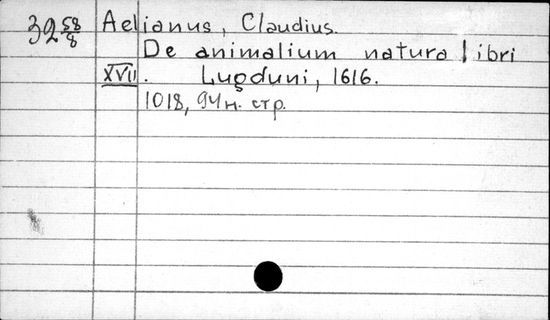 32 58/8 Aelianus, Claudius.
De animalium natura libri
XVII. Lugduni, 1616.
1018, 94 н. стр.